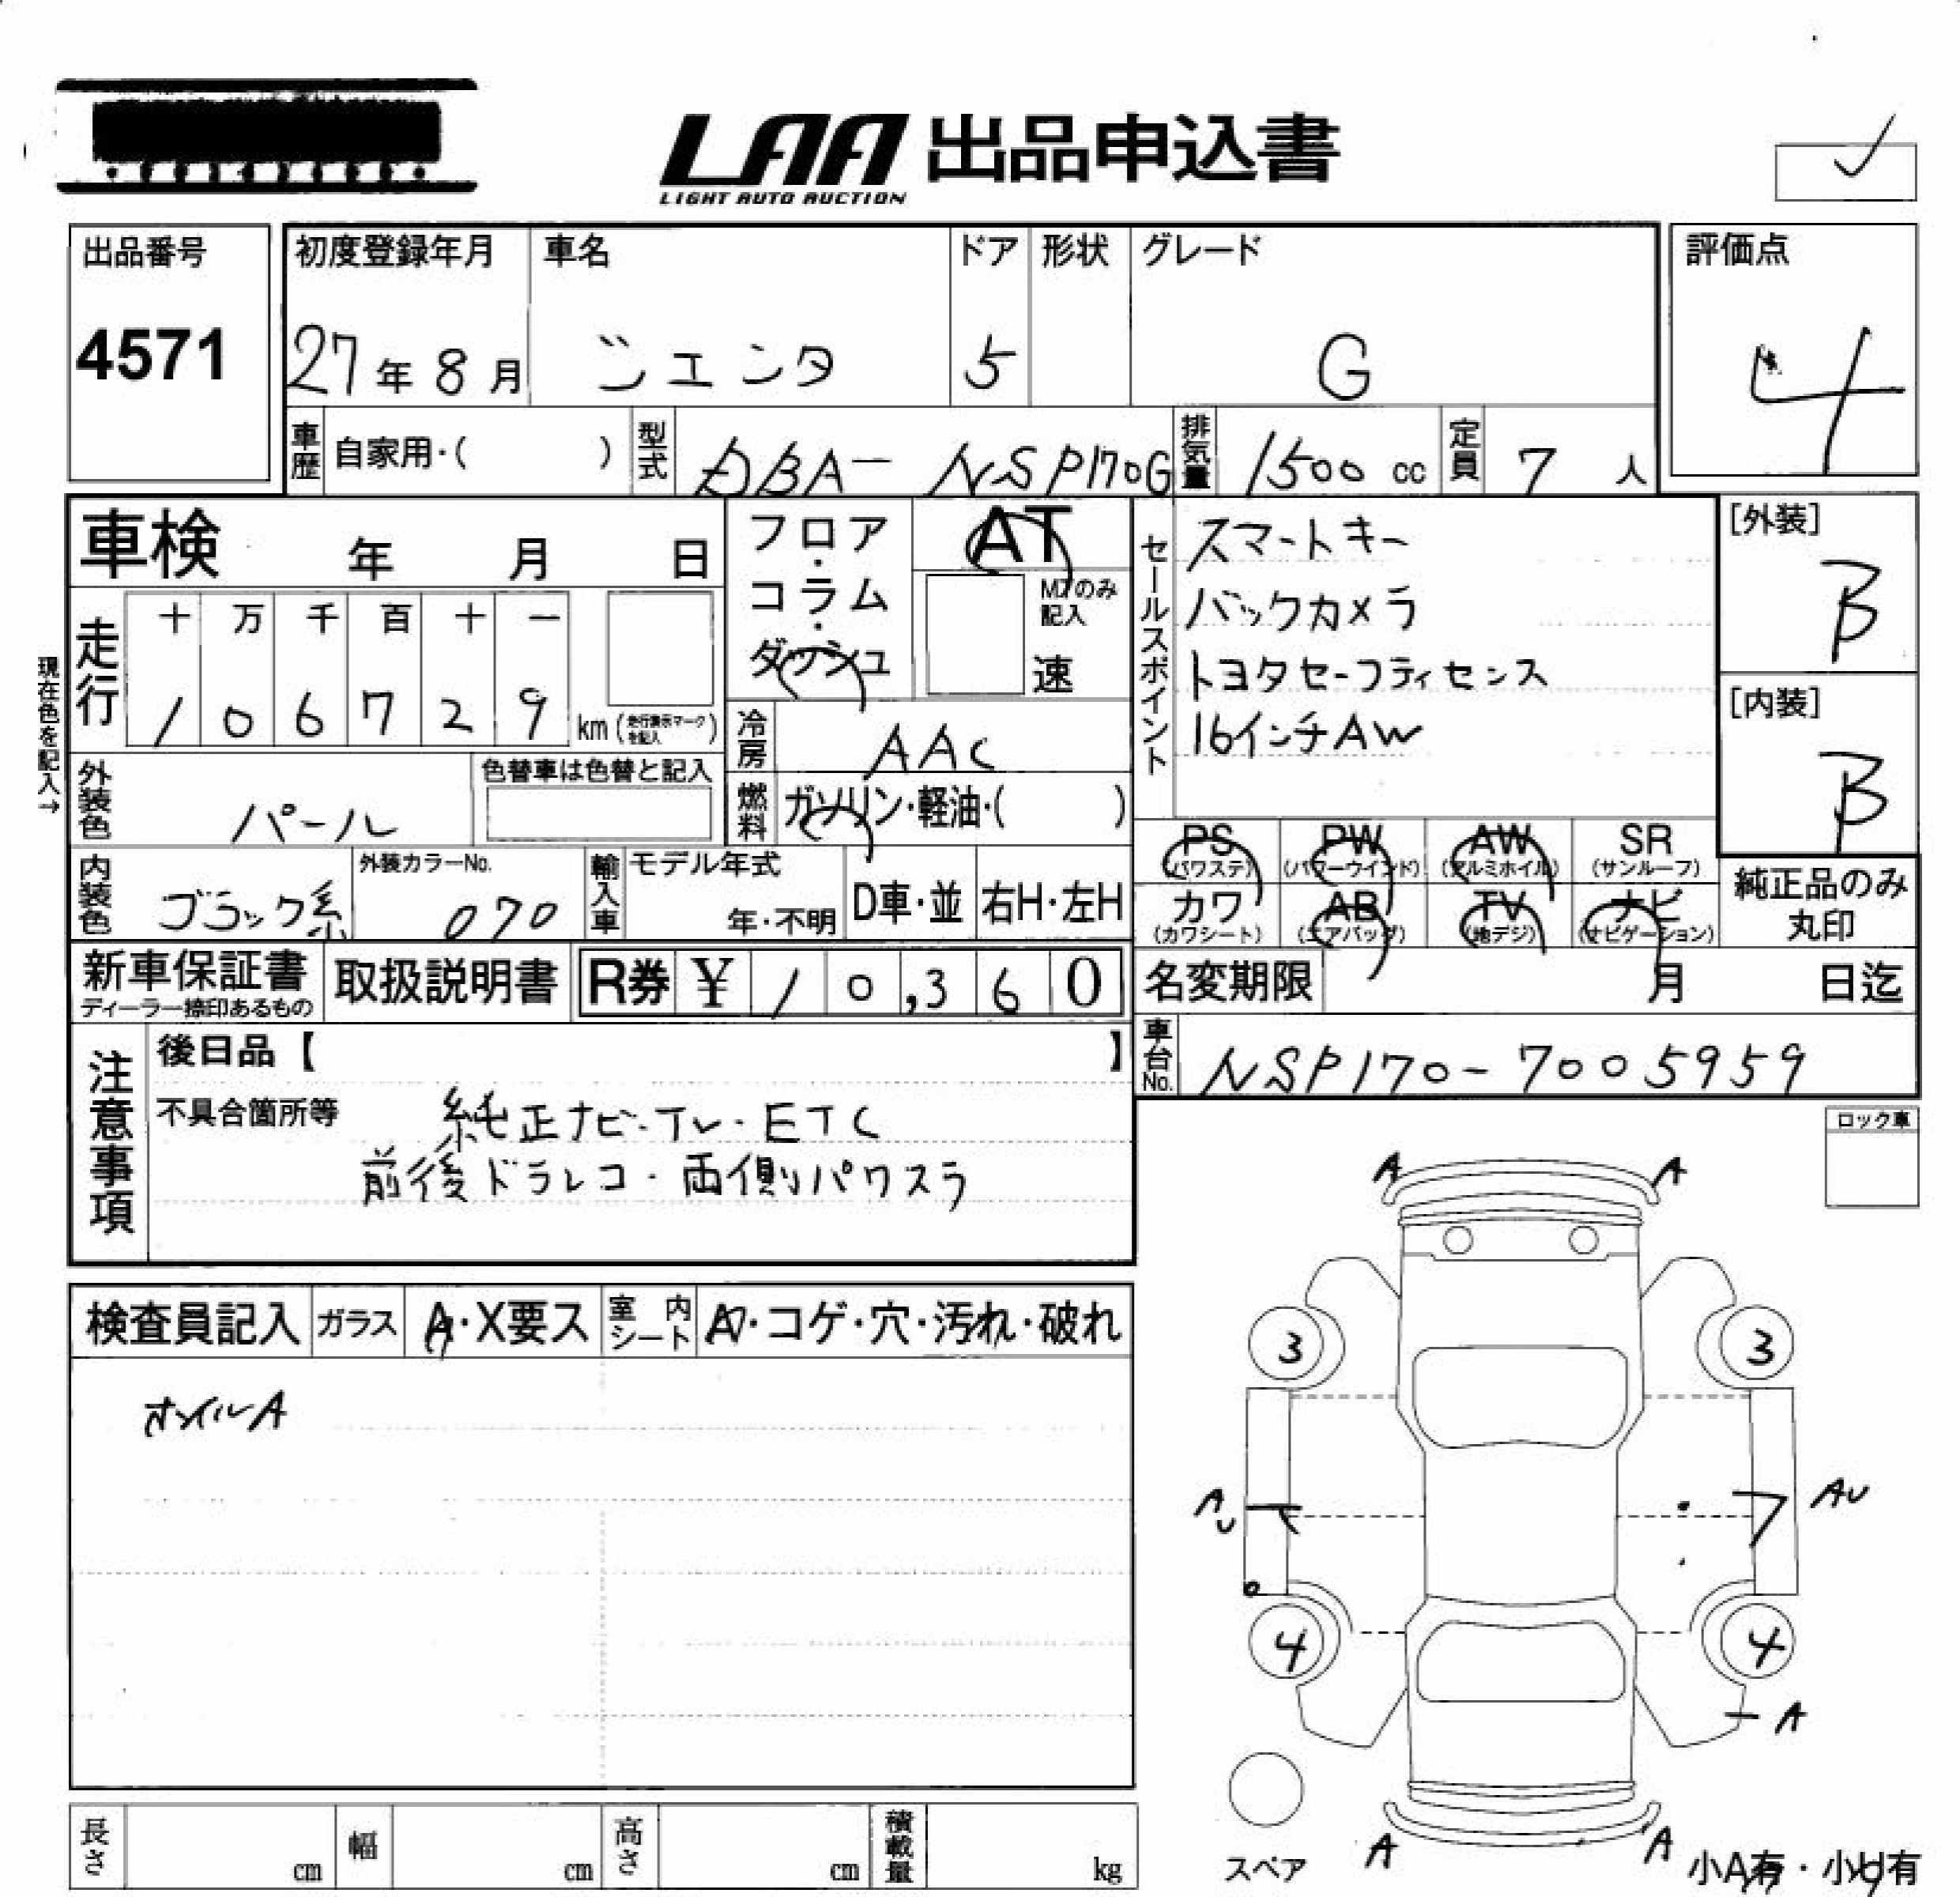 LAA 出品申込書
LIGHT AUTO AUCTION
出品番号
4571
初度登録年月 車名 ドア 形状 グレード
27年 8月 シエンタ 5 G
評価点
4
車歴 自家用・( ) 型式 DBA-NSP170G 排気量 1500 cc 定員 7 人
車検 年 月 日
フロア・コラム・ダッシュ
AT
MTのみ記入
速
セールスポイント
スマートキー
バックカメラ
トヨタセーフティセンス
16インチAW
[外装]
B
[内装]
B
現在色を記入→
走行
十 万 千 百 十 一
1 0 6 7 2 9 km (走行表示マークを記入)
冷房 AAC
燃料 ガソリン・軽油・( )
外装色 パール
色替車は色替と記入
PS (パワステ) PW (パワーウインド) AW (アルミホイル) SR (サンルーフ)
カワ (カワシート) AB (エアバッグ) TV (地デジ) ナビ (ナビゲーション)
純正品のみ丸印
内装色 ブラック系
外装カラーNo.
070
輸入車 モデル年式
年・不明 D車・並 右H・左H
新車保証書
ディーラー捺印あるもの
取扱説明書
R券 ¥ 10,360
名変期限 月 日迄
車台No. NSP170-7005959
注意事項
後日品【 】
不具合箇所等 純正ナビ・TV・ETC
前後ドラレコ・両側パワスラ
ロック車
検査員記入 ガラス A・X要ス 室内シート A・コゲ・穴・汚れ・破れ
オイルA
A A
3 3
AU AU
4 4
A
A A
スペア
小A有・小U有
長さ cm 幅 cm 高さ cm 積載量 kg